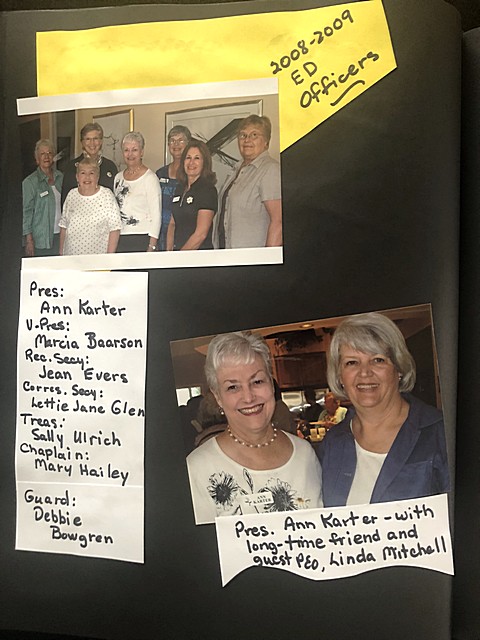 2008-2009
ED
Officers
Pres:
Ann Karter
V-Pres:
Marcia Baarson
Rec. Secy:
Jean Evers
Corres. Secy:
Lettie Jane Glen
Treas:
Sally Ulrich
Chaplain:
Mary Hailey
Guard:
Debbie
Bowgren
ANN
KARTER
Pres. Ann Karter - with
long-time friend and
guest PEO, Linda Mitchell